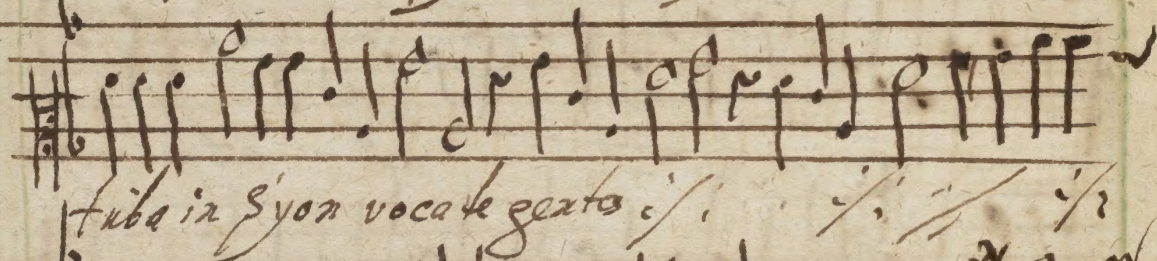 tuba in Syon vocate gentes :/: :/: :/: :/: